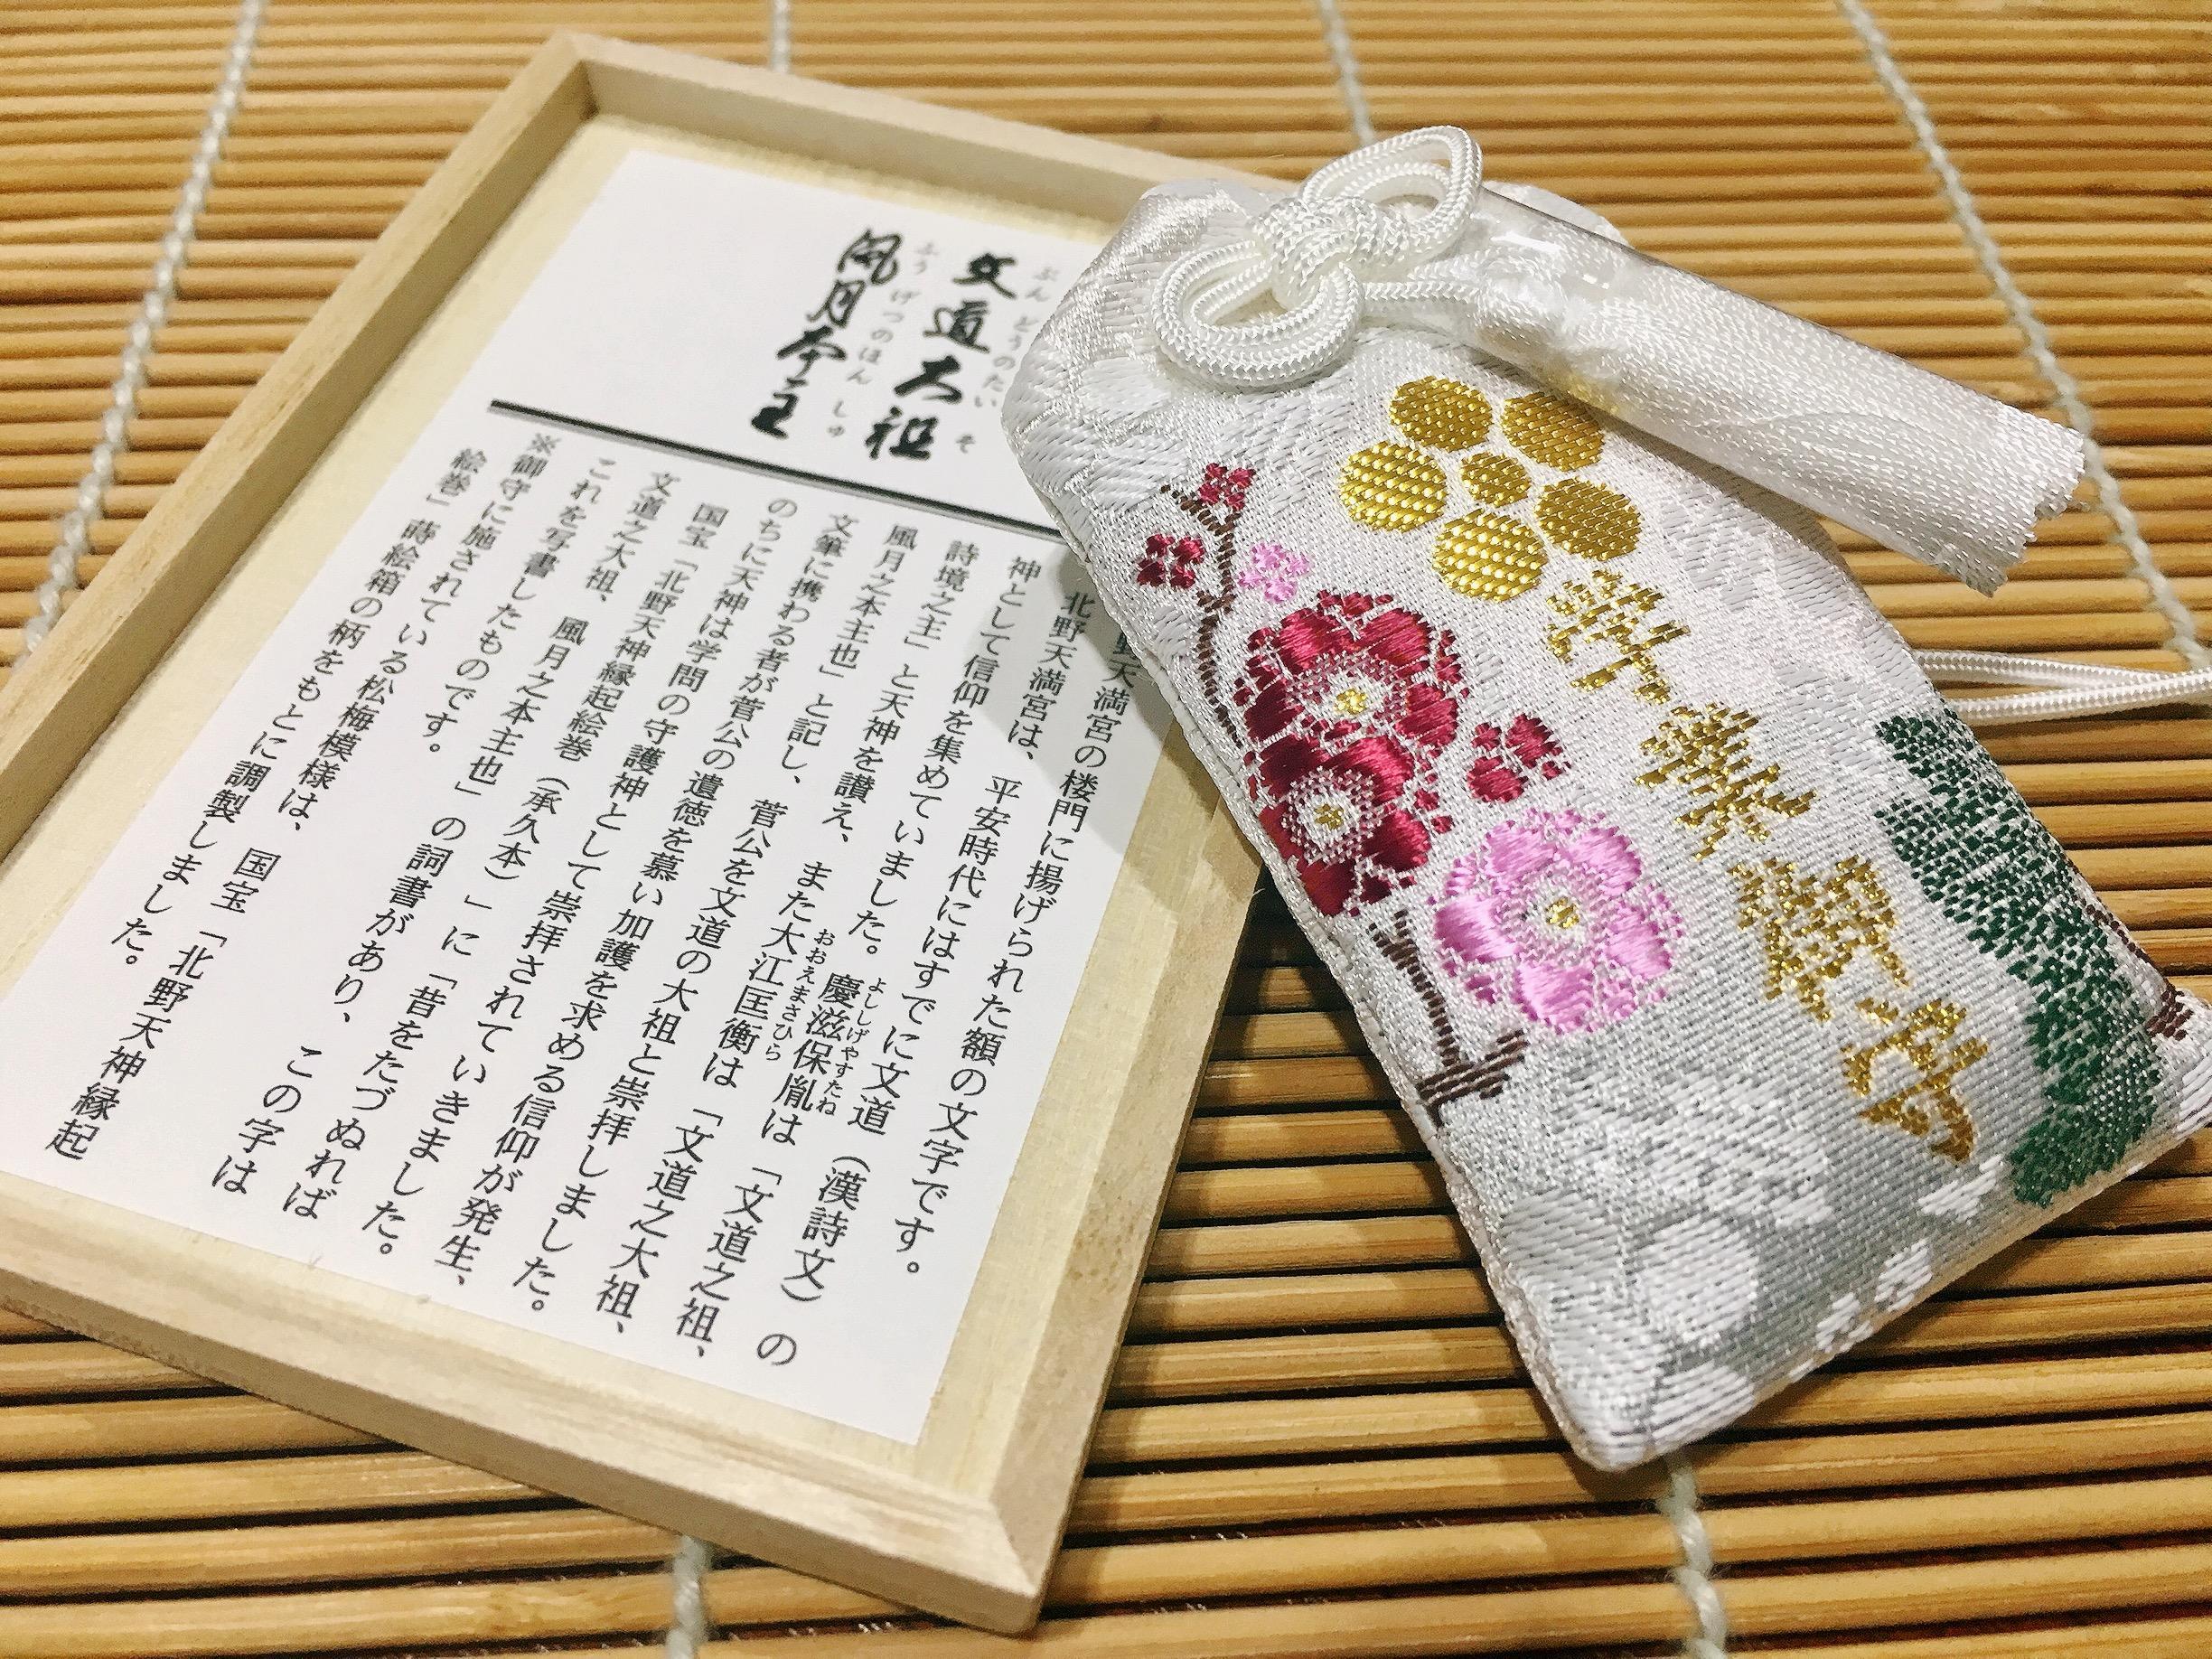 文道大祖
ぶんどうのたいそ
風月本主
ふうげつのほんしゅ
野天満宮の楼門に揚げられた額の文字です。
北野天満宮は、平安時代にはすでに文道（漢詩文）の
神として信仰を集めていました。慶滋保胤は「文道之祖、
よししげやすたね
詩境之主」と天神を讃え、また大江匡衡は「文道之大祖、
おおえまさひら
風月之本主也」と記し、菅公を文道の大祖と崇拝しました。
文筆に携わる者が菅公の遺徳を慕い加護を求める信仰が発生、
のちに天神は学問の守護神として崇拝されていきました。
国宝「北野天神縁起絵巻（承久本）」に「昔をたづぬれば
文道之大祖、風月之本主也」の詞書があり、この字は
これを写書したものです。
※御守に施されている松梅模様は、国宝「北野天神縁起
絵巻」蒔絵箱の柄をもとに調製しました。
学業御守